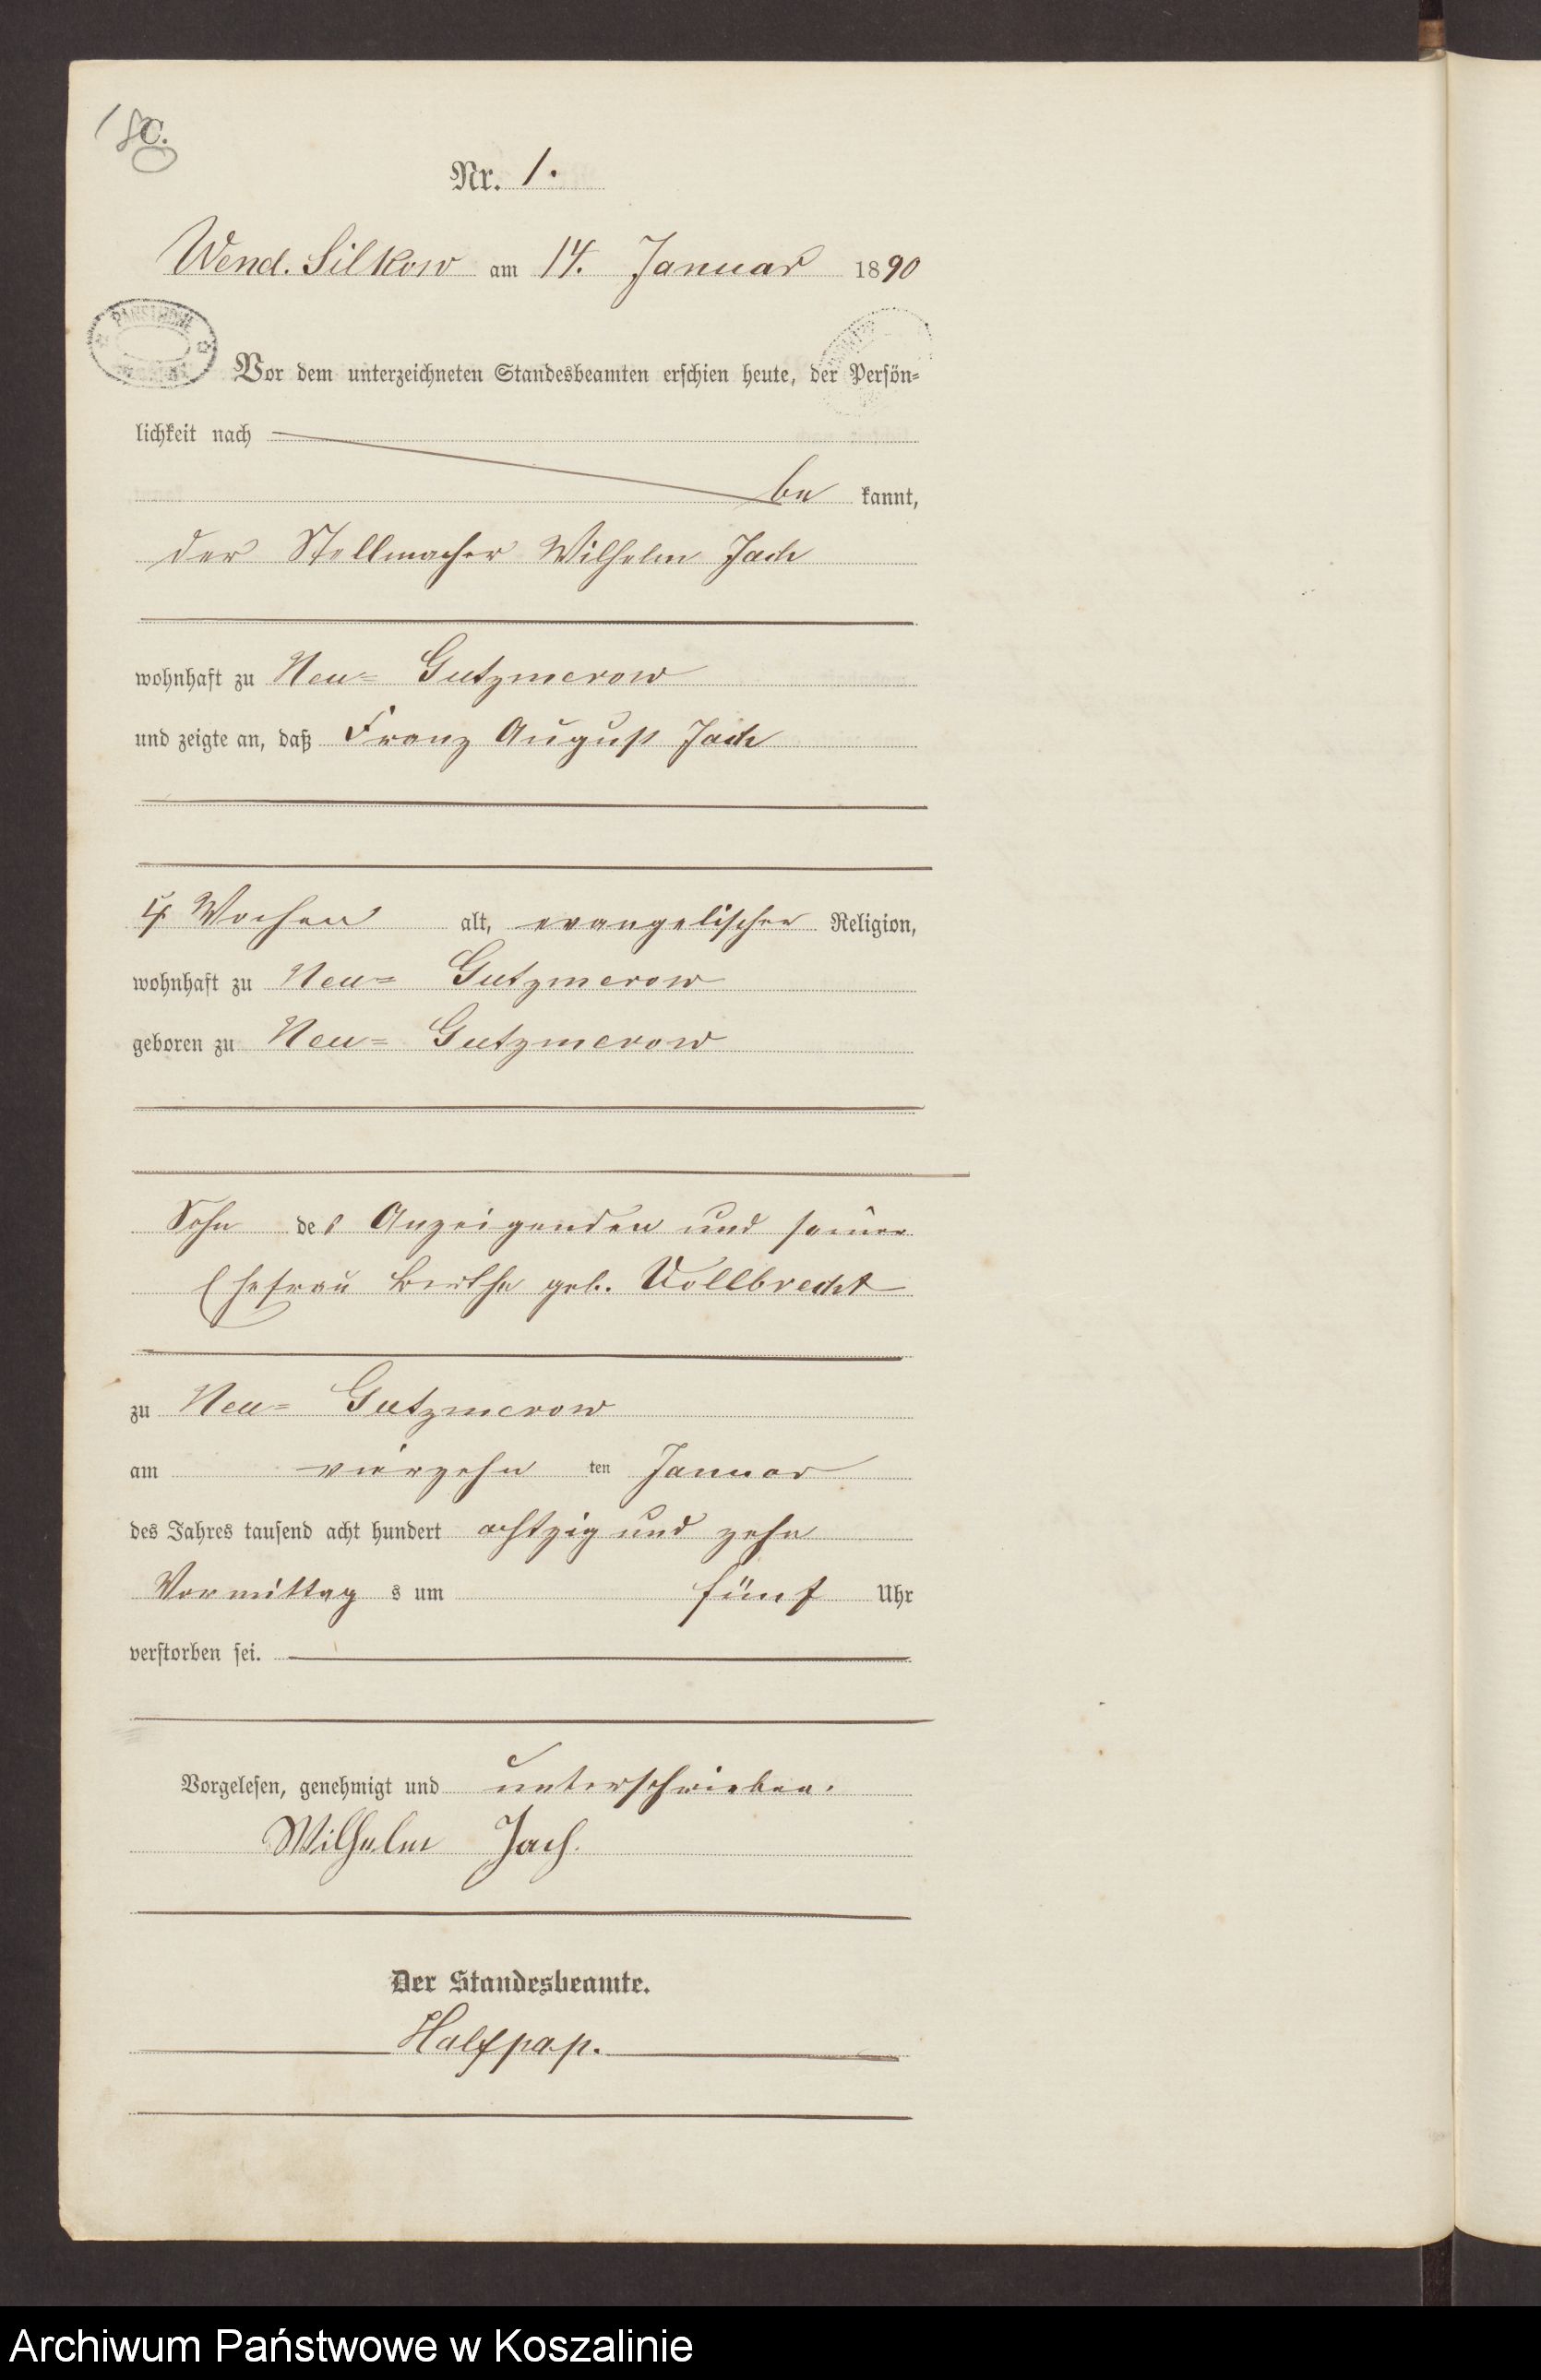 C.
Nr. 1.
Wend. Silkow am 14. Januar 1890
Vor dem unterzeichneten Standesbeamten erschien heute, der Persön-
lichkeit nach
be kannt,
der Stellmacher Wilhelm Jach
wohnhaft zu Neu- Gutzmerow
und zeigte an, daß Franz August Jach
4 Wochen alt, evangelischer Religion,
wohnhaft zu Neu- Gutzmerow
geboren zu Neu- Gutzmerow
Sohn des Anzeigenden und seiner
Ehefrau Berthe geb. Vollbrecht
zu Neu- Gutzmerow
am vierzehn ten Januar
des Jahres tausend acht hundert achtzig und zehn
Vormittag s um fünf Uhr
verstorben sei.
Vorgelesen, genehmigt und unterschrieben.
Wilhelm Jach.
Der Standesbeamte.
Halfpap.
Archiwum Państwowe w Koszalinie